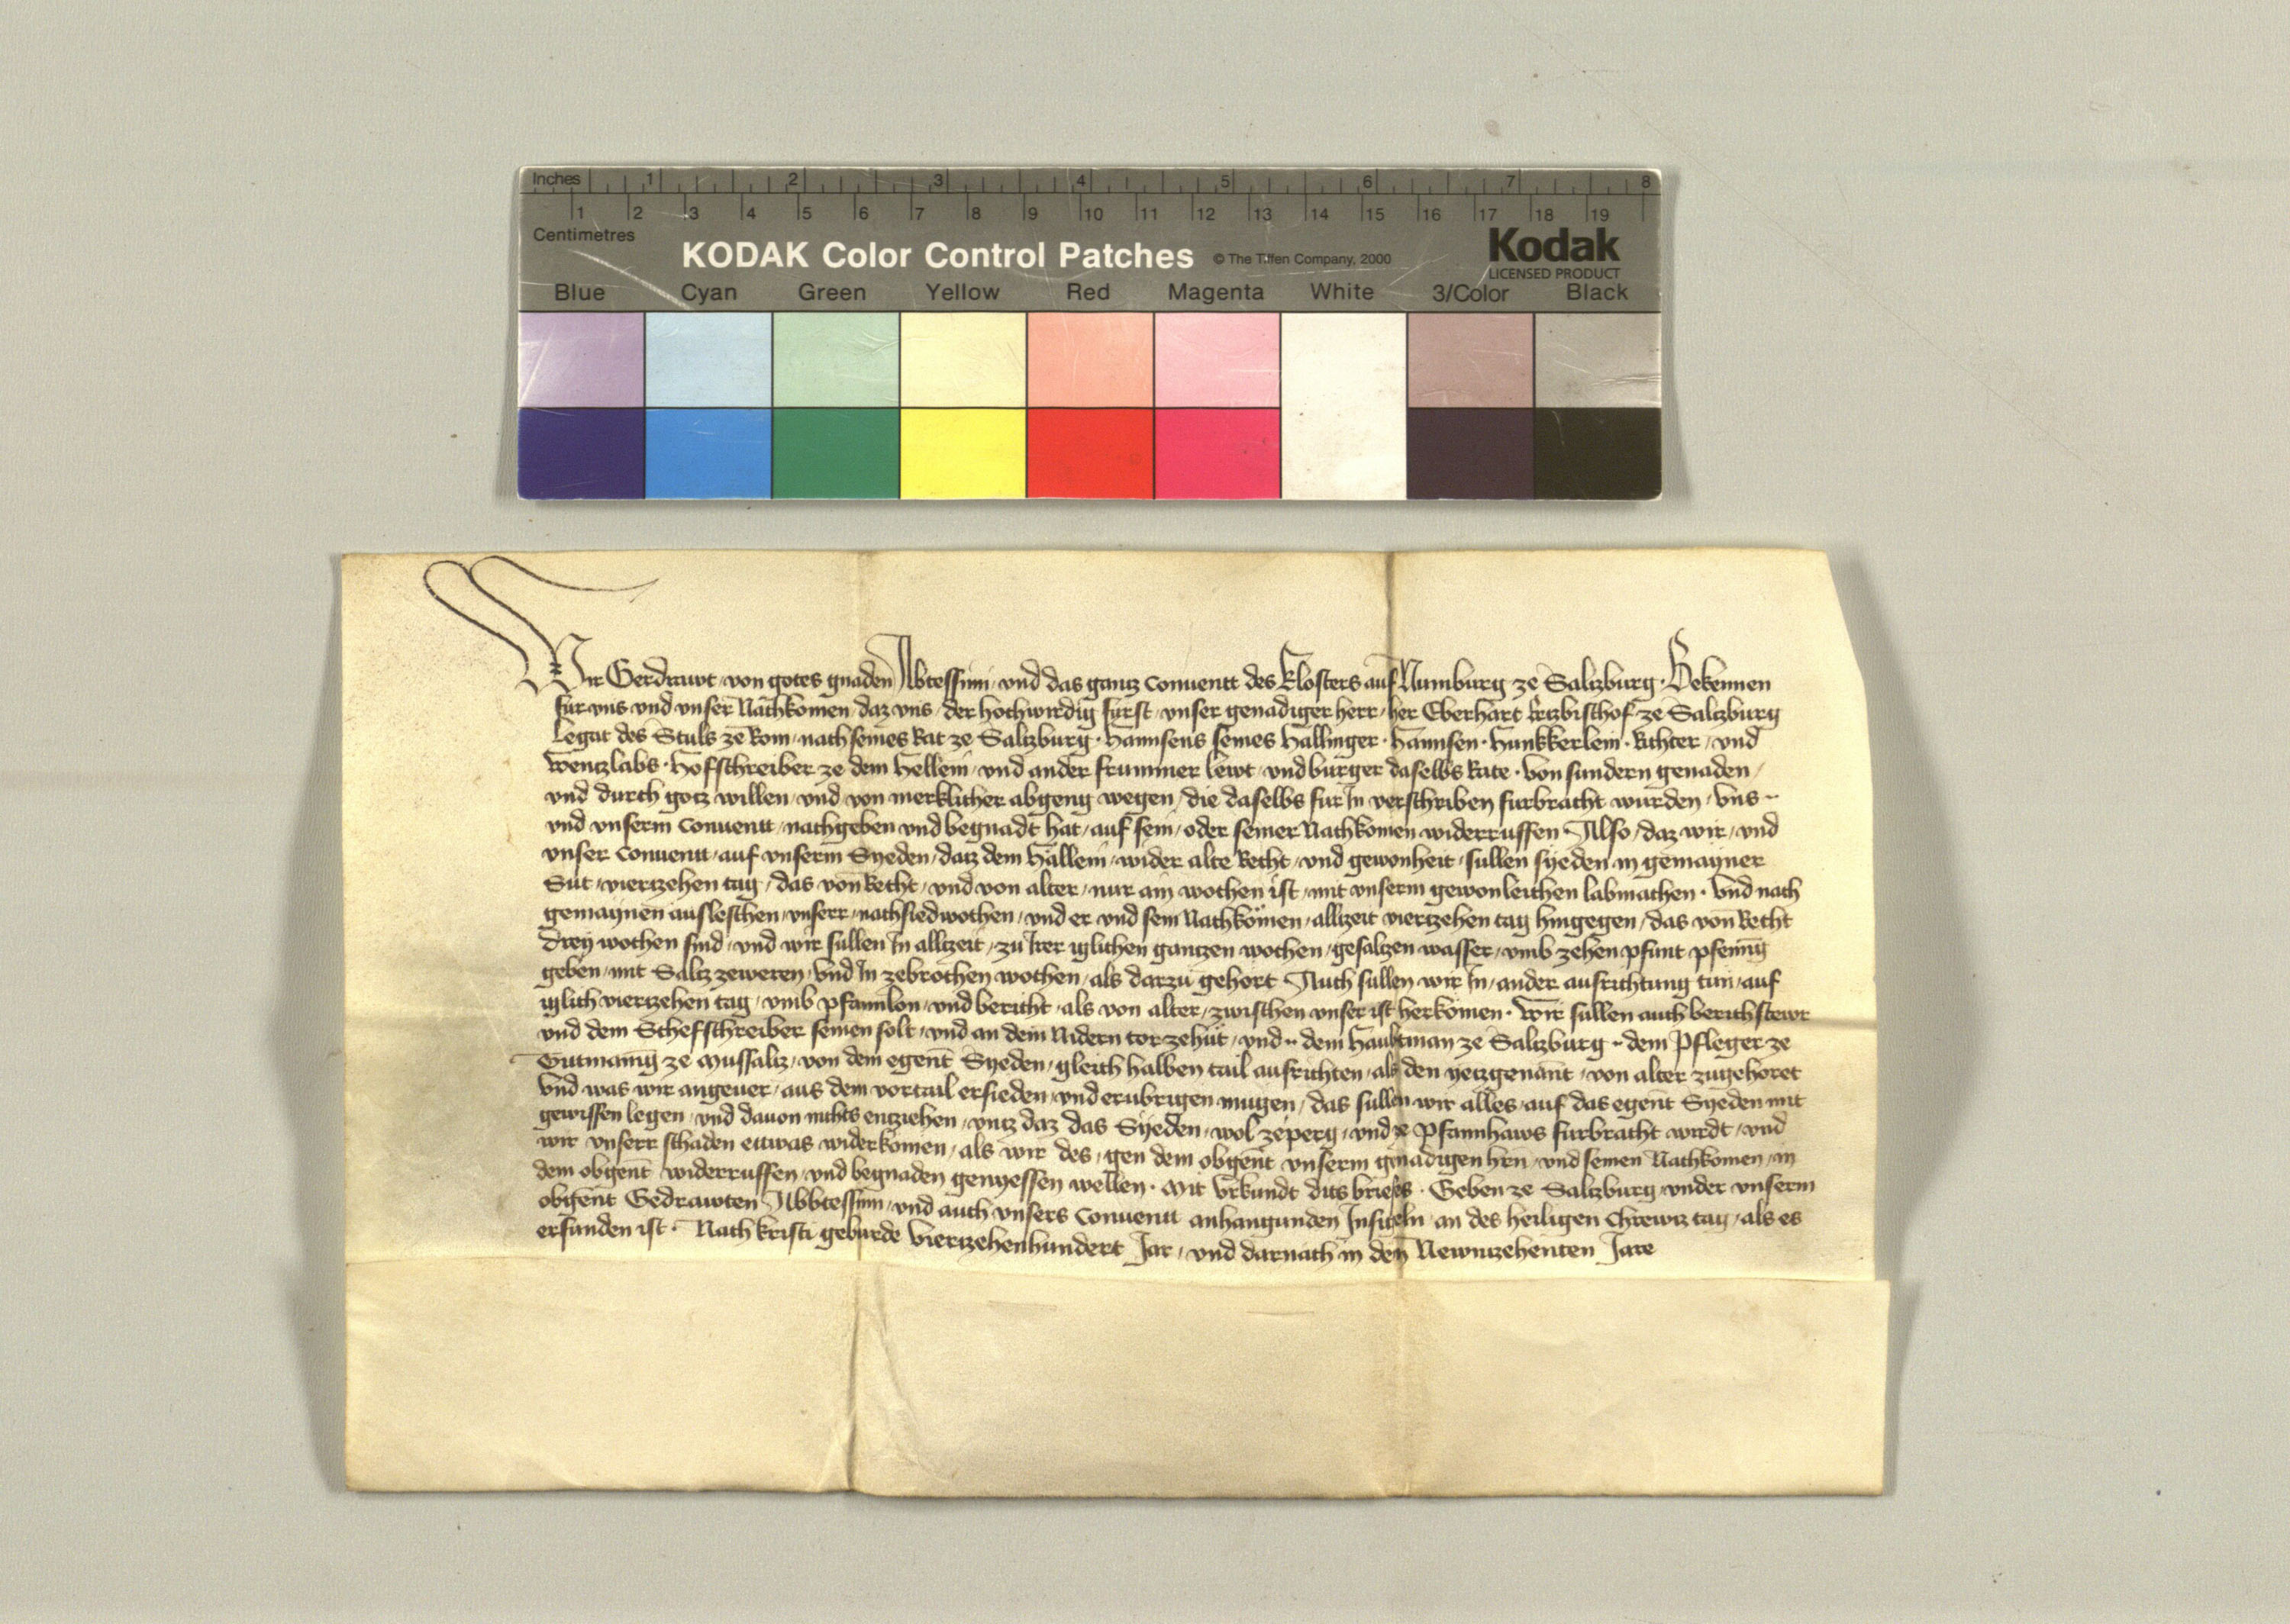 Inches 1 2 3 4 5 6 7 8
1 2 3 4 5 6 7 8 9 10 11 12 13 14 15 16 17 18 19
Centimetres
KODAK Color Control Patches © The Tiffen Company, 2000 Kodak
LICENSED PRODUCT
Blue Cyan Green Yellow Red Magenta White 3/Color Black
Wir Gerdrawt von gotes gnaden Abtessinn und das gantz Conuentt des Klosters auf Nunburg ze Salzburg. Bekennen
fur vns vnd vnser Nachkomen daz vns der hochwirdig furst vnser genadiger herr her Eberhart Ertzbischof ze Salzburg
Legat des Stuls ze Rom nach seines Rat ze Salzburg. Hannsens seines Hallinger. Hannsen. Hunkkerlein. Richter und
Wentzlabs. Hofschreiber ze dem Hellein vnd ander frummer lewt vnd burger daselbs Rate. Von sundern genaden
vnd durch gotz willen vnd von merklicher abgeng wegen die daselbs fur In verschriben furbracht wurden vns
vnd vnserm Conuentt nachgeben vnd begnadt hat auf sein oder seiner Nachkomen widerruffen Also daz wir vnd
vnser Conuentt auf vnserm Syeden datz dem Hallein wider alte Recht vnd gewonheit sullen syeden in gemayner
Sut viertzehen tag das von Recht vnd von alter nur ain wochen ist mit vnserm gewonleichen labmachen. Vnd nach
gemaynen ausleschen vnserr nachsiedwochen vnd er vnd sein Nachkomen alltzeit viertzehen tag hingegen das von Recht
drey wochen sind vnd wir sullen In alltzeit zu Irer iglichen gantzen wochen gesaltzen wasser vmb zehen pfunt pfennig
geben mit Saltz zeweren Vnd In zebrochen wochen als darzu gehort Auch sullen wir In ander ausrichtung tun auf
iglich viertzehen tag vmb pfannlon vnd bericht als von alter zwischen vnser ist herkomen. Wir sullen auch berichstewr
vnd dem Schefschreiber seinen solt vnd an dem Nidern tor zehut vnd dem Haubtman ze Salzburg dem Pfleger ze
Gutmanig ze Mussaltz von dem egent Syeden gleich halben tail ausrichten als den yetzgenant von alter zugehoret
Vnd was wir angeuer aus dem vortail ersieden vnd erubrigen mugen das sullen wir alles auf das egent Syeden mit
gewissen legen vnd dauon nichts entziehen vntz daz das Syeden wol zeperg vnd ze Pfannhaws furbracht wirdt vnd
wir vnserr schaden ettwas widerkomen als wir des gen dem obgent vnserm gnadigen hrn vnd seinen Nachkomen in
dem obgent widerruffen vnd begnaden genyessen wellen. Mit Vrkundt dits briefs. Geben ze Salzburg vnder vnserm
obgent Gedrawten Abbtessinn vnd auch vnsers Conuentt anhangunden Insigeln an des heiligen Chrewtz tag als es
erfunden ist. Nach Kristi geburde Viertzehenhundert Jar vnd darnach in den Newntzehenten Jare